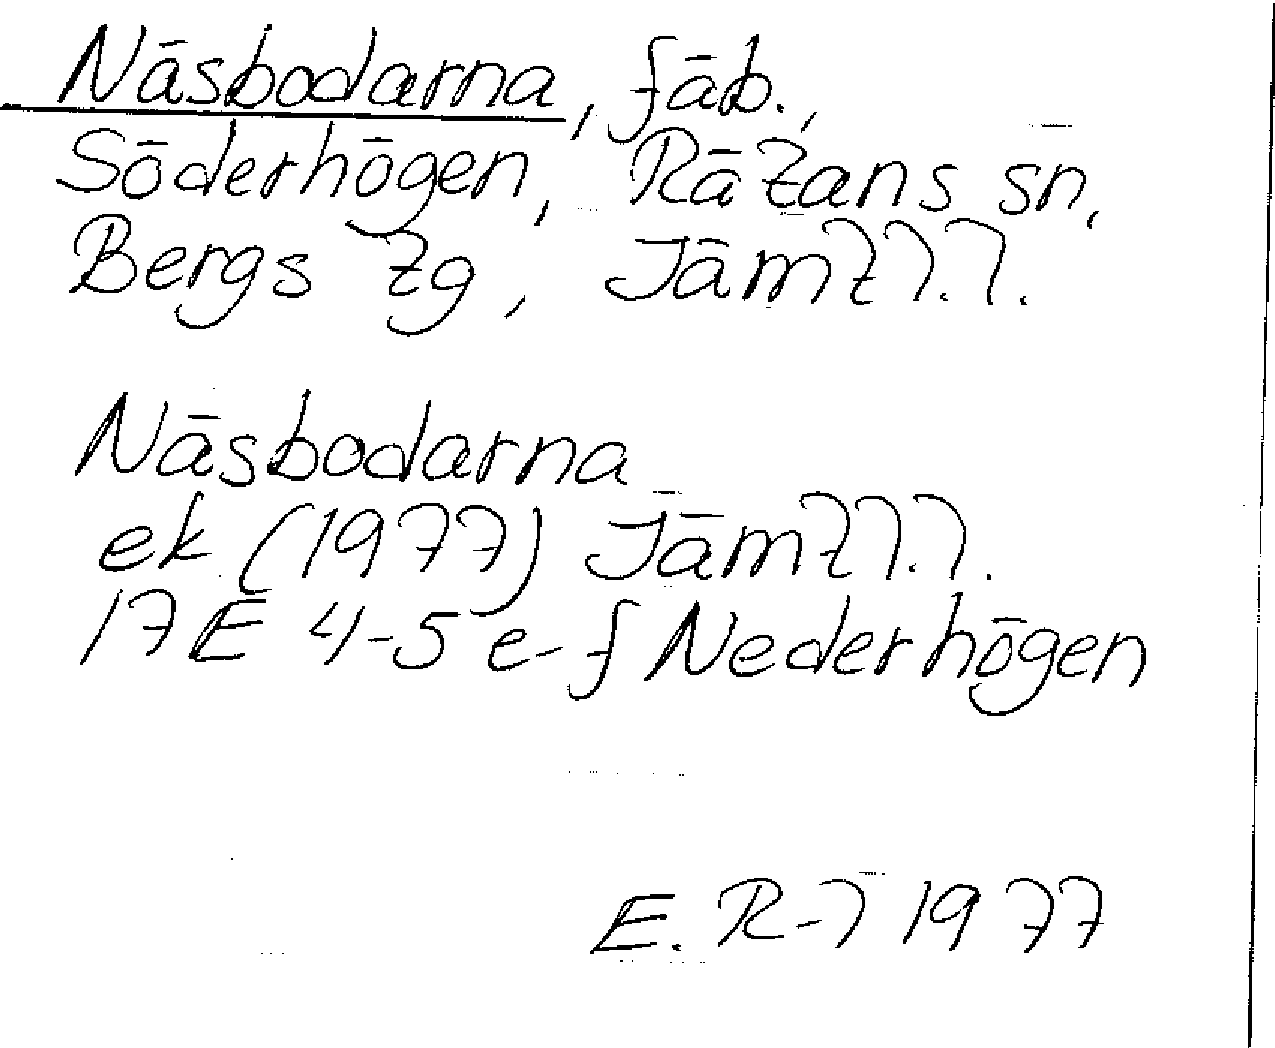 Näsbodarna, fäb.,
Söderhögen, Rätans sn,
Bergs tg, Jämtl.l.
Näsbodarna
ek (1977) Jämtl.l.
17E 4-5 e-f Nederhögen
E. R-T 1977